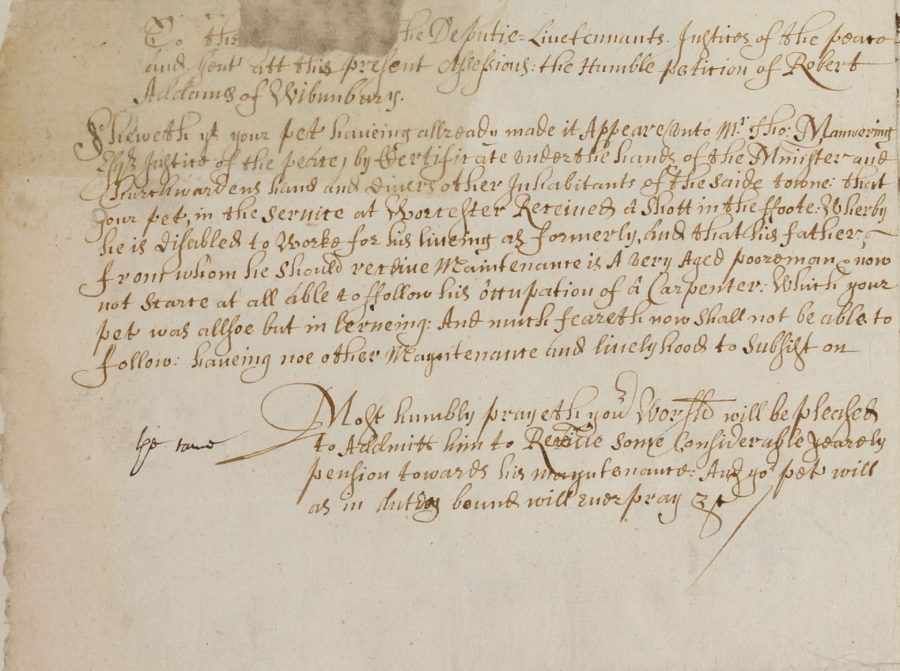 To the the Deputie-Livetennants. Justices of the peace
and Gent att this present Assessions: the Humble peticion of Robert
Addams of Wibunbury.
Sheweth yt your pet haveing allready made it Appeare unto Mr Tho: Manwering
Esqr Justice of the peace, by Certificate under the hands of the Minister and
Churchwardens hand and divers other Inhabitants of the saide towne: that
your pet, in the service at Worcester Received a Shott in the ffoote. Wherby
he is disabled to Worke for his liveing as formerly, and that his father,
from whom he should receive Maintenance is A very Aged pooreman now
not scarce at all able to ffollow his occupation of a Carpenter: Which your
pet was allsoe but in lerneing: And much feareth now shall not be able to
ffollow: haveing noe other Mayntenance and livelyhood to Subsist on
Most humbly prayeth your Worspp will be pleased
to Addmitt him to Receive some Considerable yearely
pension towards his mayntenance: And yor pet will
as in dutey bound will ever pray &c